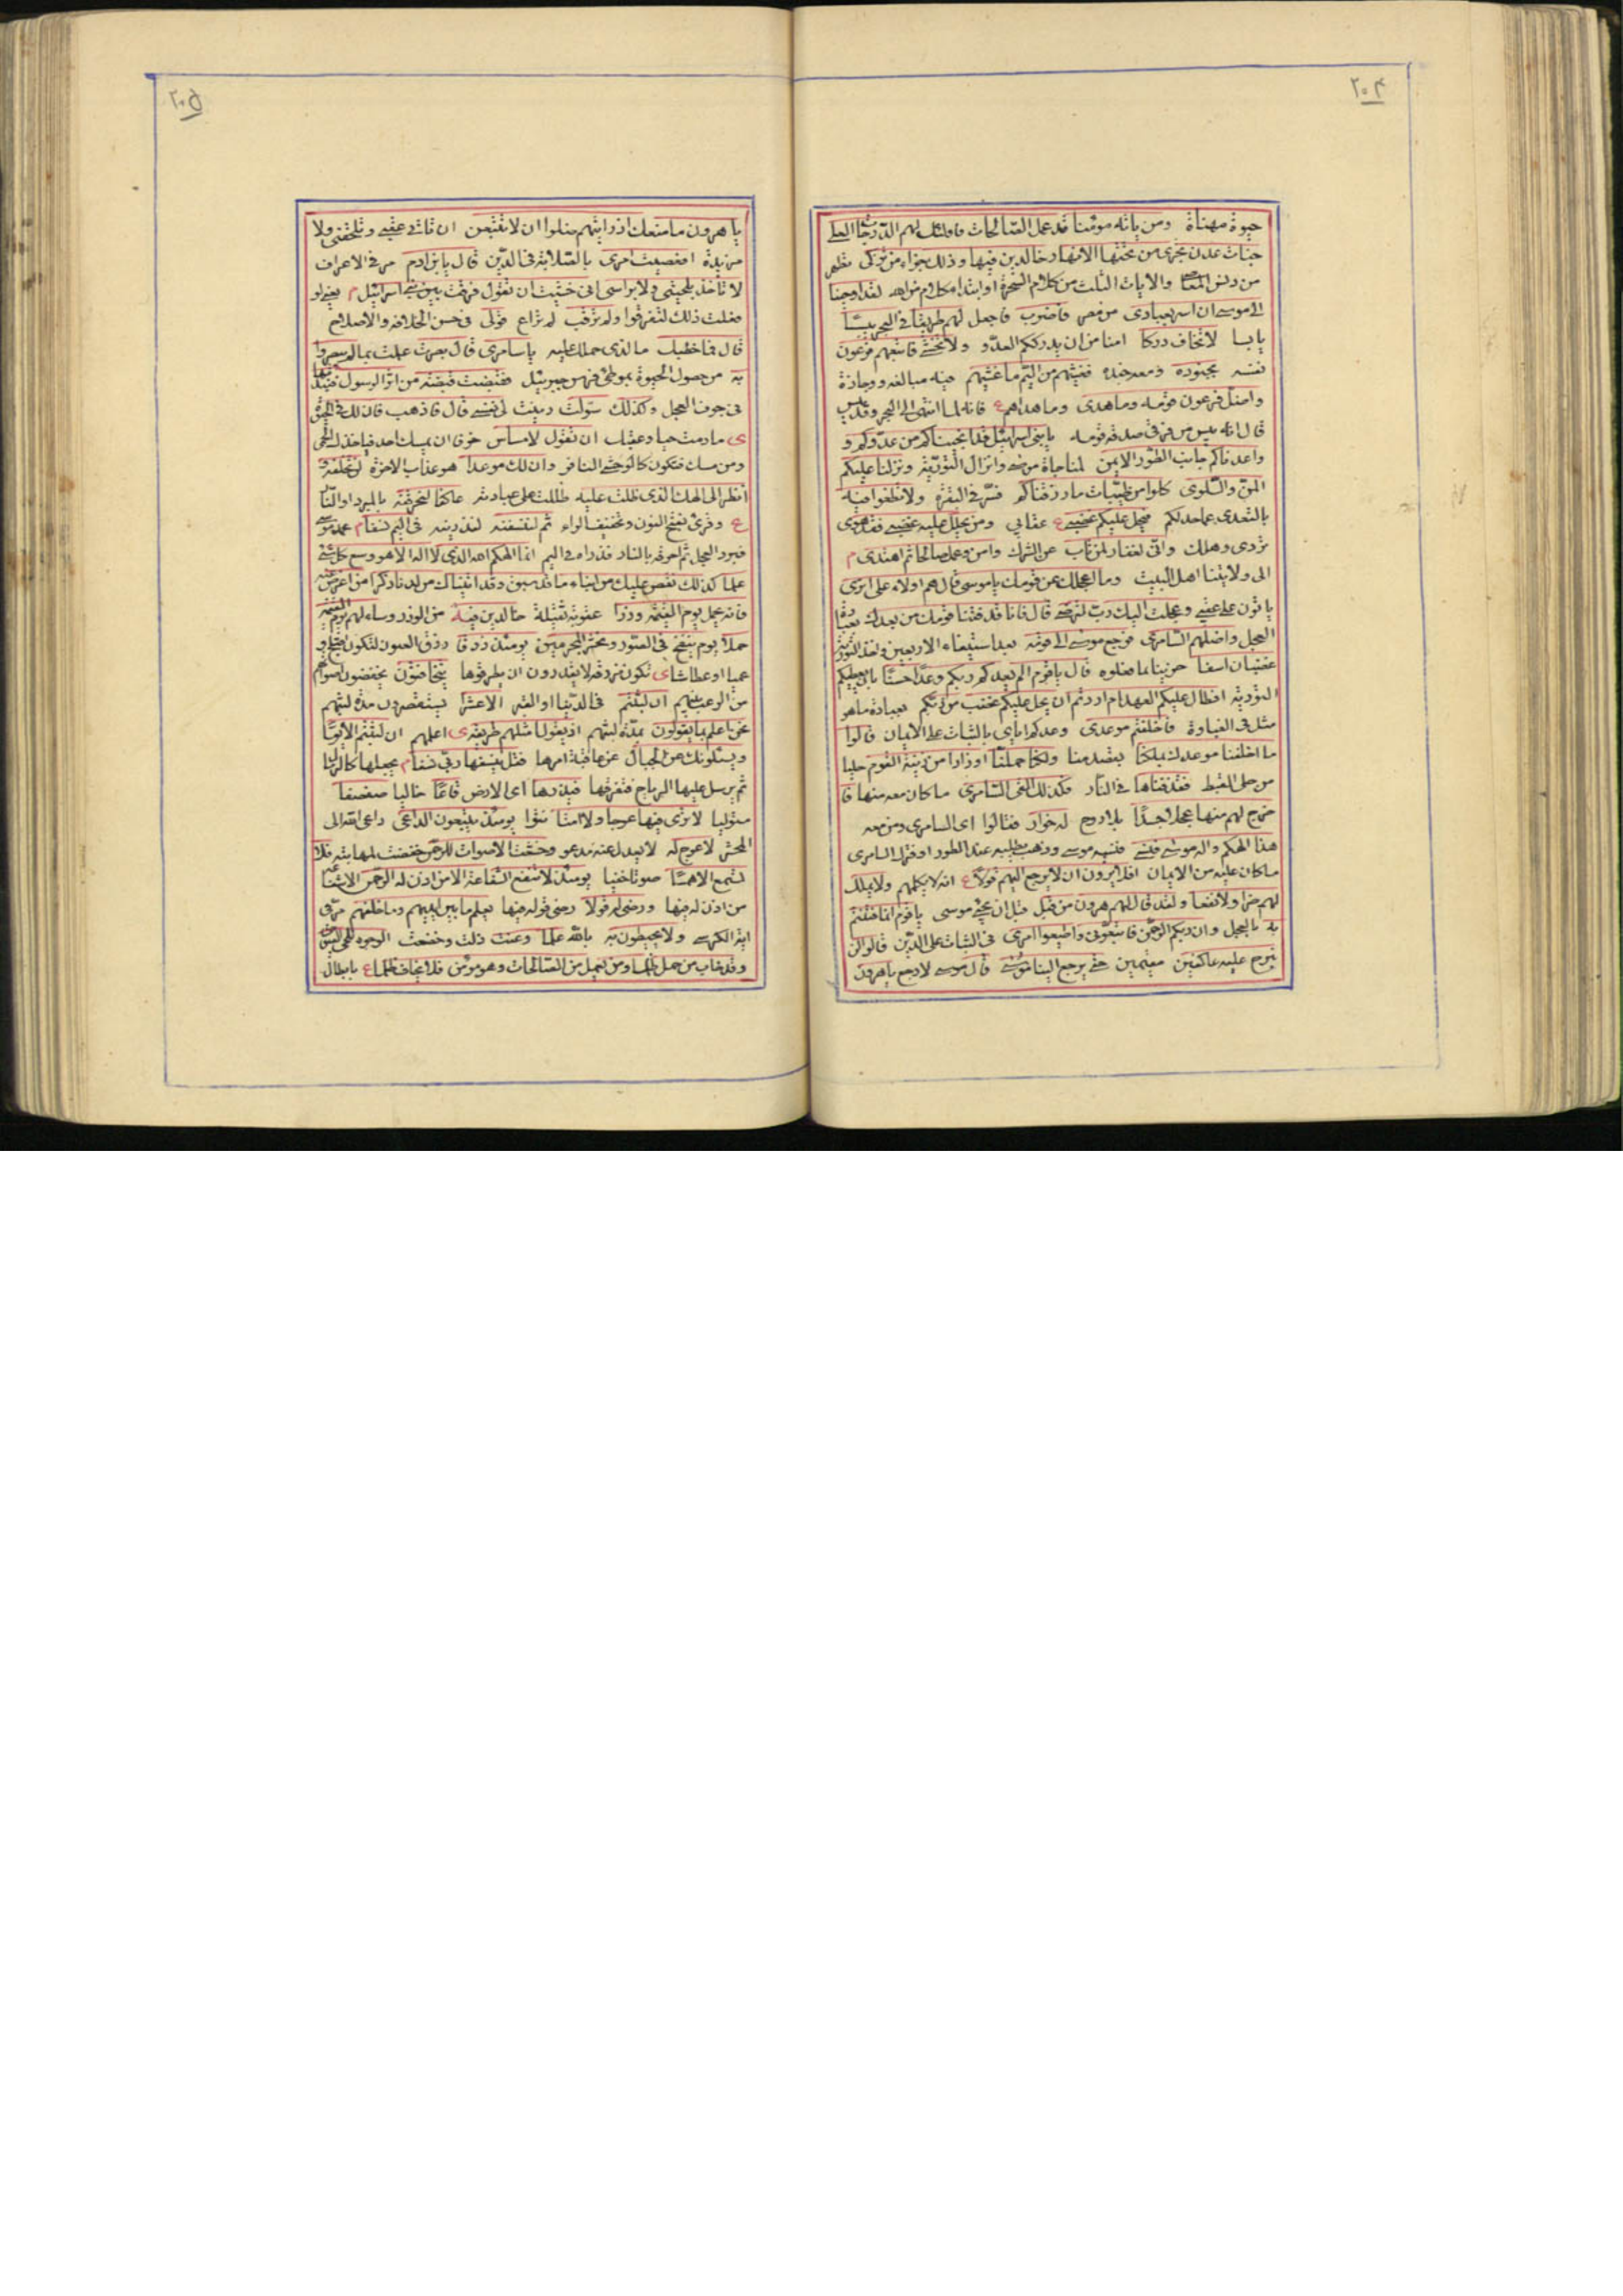 ۲۰۴
حيوة مهناة ومن ياته مومنا قد عمل الصالحات فاولئك لهم الدرجات العلى
جنات عدن تجرى من تحتها الانهار خالدين فيها وذلك جزاء من تزكى تطهر
من دنس المعاصى والايات الثلث من كلام السحرة او ابتداء كلام من الله لقد اوحينا
الى موسى ان اسر بعبادى من مصر فاضرب فاجعل لهم طريقا فى البحر يبسا
يابسا لا تخاف دركا امنا من ان يدرككم العدو ولا تخشى فاتبعهم فرعون
نفسه بجنوده ومعه جنده فغشيهم من اليم ما غشيهم فيه مبالغه ووجازة
واضل فرعون قومه وما هدى وما هداهم ع فانه لما انتهى الى البحر وقد يبس
قال انه يبس من فرقى صدقه قومه يا بنى اسرائيل قد انجيناكم من عدوكم و
واعدناكم جانب الطور الايمن لمناجاة موسى وانزال التورية ونزلنا عليكم
المن والسلوى كلوا من طيبات ما رزقناكم فسر فى البقرة ولا تطغوا فيه
بالتعدى عما حد لكم فيحل عليكم غضبى ع عقابى ومن يحلل عليه غضبى فقد هوى
تردى وهلك وانى لغفار لمن تاب عن الشرك وامن وعمل صالحا ثم اهتدى م
الى ولايتنا اهل البيت وما اعجلك عن قومك يا موسى قال هم اولاء على اثرى
ياتون على عقبى وعجلت اليك رب لترضى قال فانا قد فتنا قومك من بعدك بعبادة
العجل واضلهم السامرى فرجع موسى الى قومه بعد استيفاء الاربعين واخذ التورية
غضبان اسفا حزينا بما فعلوه قال يا قوم الم يعدكم ربكم وعدا حسنا بان يعطيكم
التورية افطال عليكم العهد ام اردتم ان يحل عليكم غضب من ربكم بعبادة ما هو
مثل فى الغباوة فاخلفتم موعدى وعدكم اياى بالثبات على الايمان قالوا
ما اخلفنا موعدك بملكنا بقصد منا ولكنا حملنا اوزارا من زينة القوم حليا
من حلى القبط فقذفناها فى النار فكذلك القى السامرى ما كان معه منها فا
خرج لهم منها عجلا جسدا بلا روح له خوار فقالوا اى السامرى ومن معه
هذا الهكم واله موسى فنسى فنسيه موسى وذهب يطلبه عند الطور او فترك السامرى
ما كان عليه من الايمان افلا يرون ان لا يرجع اليهم قولا ع انه لا يكلمهم ولا يملك
لهم ضرا ولا نفعا ولقد قال لهم هرون من قبل قبل ان يجئ موسى يا قوم انما فتنتم
به بالعجل وان ربكم الرحمن فاتبعونى واطيعوا امرى فى الثبات على الدين قالوا لن
نبرح عليه عاكفين مقيمين حتى يرجع الينا موسى قال موسى لا رجع يا هرون
۲۰۵
يا هرون ما منعك اذ رايتهم ضلوا ان لا تتبعن ان تاتى عقبى وتلحقنى ولا
مزيدة افعصيت امرى بالصلابة فى الدين قال يا بن ام مر فى الاعراف
لا تاخذ بلحيتى ولا براسى انى خشيت ان تقول فرقت بين بنى اسرائيل م يعنى لو
فعلت ذلك لتفرقوا ولم ترقب لم تراع قولى فى حسن الخلافة والاصلاح
قال فما خطبك ما الذى حملك عليه يا سامرى قال بصرت علمت بما لم يبصروا
به من حصول الحيوة بموطئ فرس جبرئيل فقبضت قبضة من اثر الرسول فنبذتها
فى جوف العجل وكذلك سولت زينت لى نفسى قال فاذهب فان لك فى الحيوة
ى ما دمت حيا وعقاب ان تقول لا مساس خوفا ان يمسك احد فياخذك الحمى
ومن مسك فتكون كالوحشى النافر وان لك موعدا هو عذاب الاخرة لن تخلفه
انظر الى الهك الذى ظلت عليه ظللت على عبادته عاكفا لنحرقنه بالمبرد او النار
ع وقرئ بفتح النون وتخفيف الراء ثم لننسفنه لنذرينه فى اليم نسفا م عمد موسى
فبرد العجل ثم احرقه بالنار فذراه فى اليم انما الهكم الله الذى لا اله الا هو وسع كل شئ
علما كذلك نقص عليك من انباء ما قد سبق وقد اتيناك من لدنا ذكرا من اعرض عنه
فانه يحمل يوم القيمة وزرا عقوبة ثقيلة خالدين فيه من الوزر وساء لهم يوم القيمة
حملا يوم ينفخ فى الصور ونحشر المجرمين يومئذ زرقا زرق العيون لتكون اقبح او
عميا او عطاشا ى تكون مزرقة لا يقدرون ان يطرفوها يتخافتون يخفضون اصواتهم
من الرعب بينهم ان لبثتم فى الدنيا او القبر الا عشرا يستقصرون مدة لبثهم
نحن اعلم بما يقولون بمدة لبثهم اذ يقول امثلهم طريقة ى اعلمهم ان لبثتم الا يوما
ويسئلونك عن الجبال عن عاقبة امرها فقل ينسفها ربى نسفا م يجعلها كالرمل
ثم يرسل عليها الرياح فتفرقها فيذرها اى الارض قاعا خاليا صفصفا
مستويا لا ترى فيها عوجا ولا امتا نتوا يومئذ يتبعون الداعى داعى الله الى
المحشر لا عوج له لا يعدل عنه مدعو وخشعت الاصوات للرحمن خفضت لمهابته فلا
تسمع الا همسا صوتا خفيا يومئذ لا تنفع الشفاعة الا من اذن له الرحمن الا شفاعة
من اذن له فيها ورضى له قولا رضى قوله فيها يعلم ما بين ايديهم وما خلفهم مر فى
اية الكرسى ولا يحيطون به بالله علما وعنت ذلت وخضعت الوجوه للحى القيوم
وقد خاب من حمل ظلما ومن يعمل من الصالحات وهو مومن فلا يخاف ظلما ع بابطال